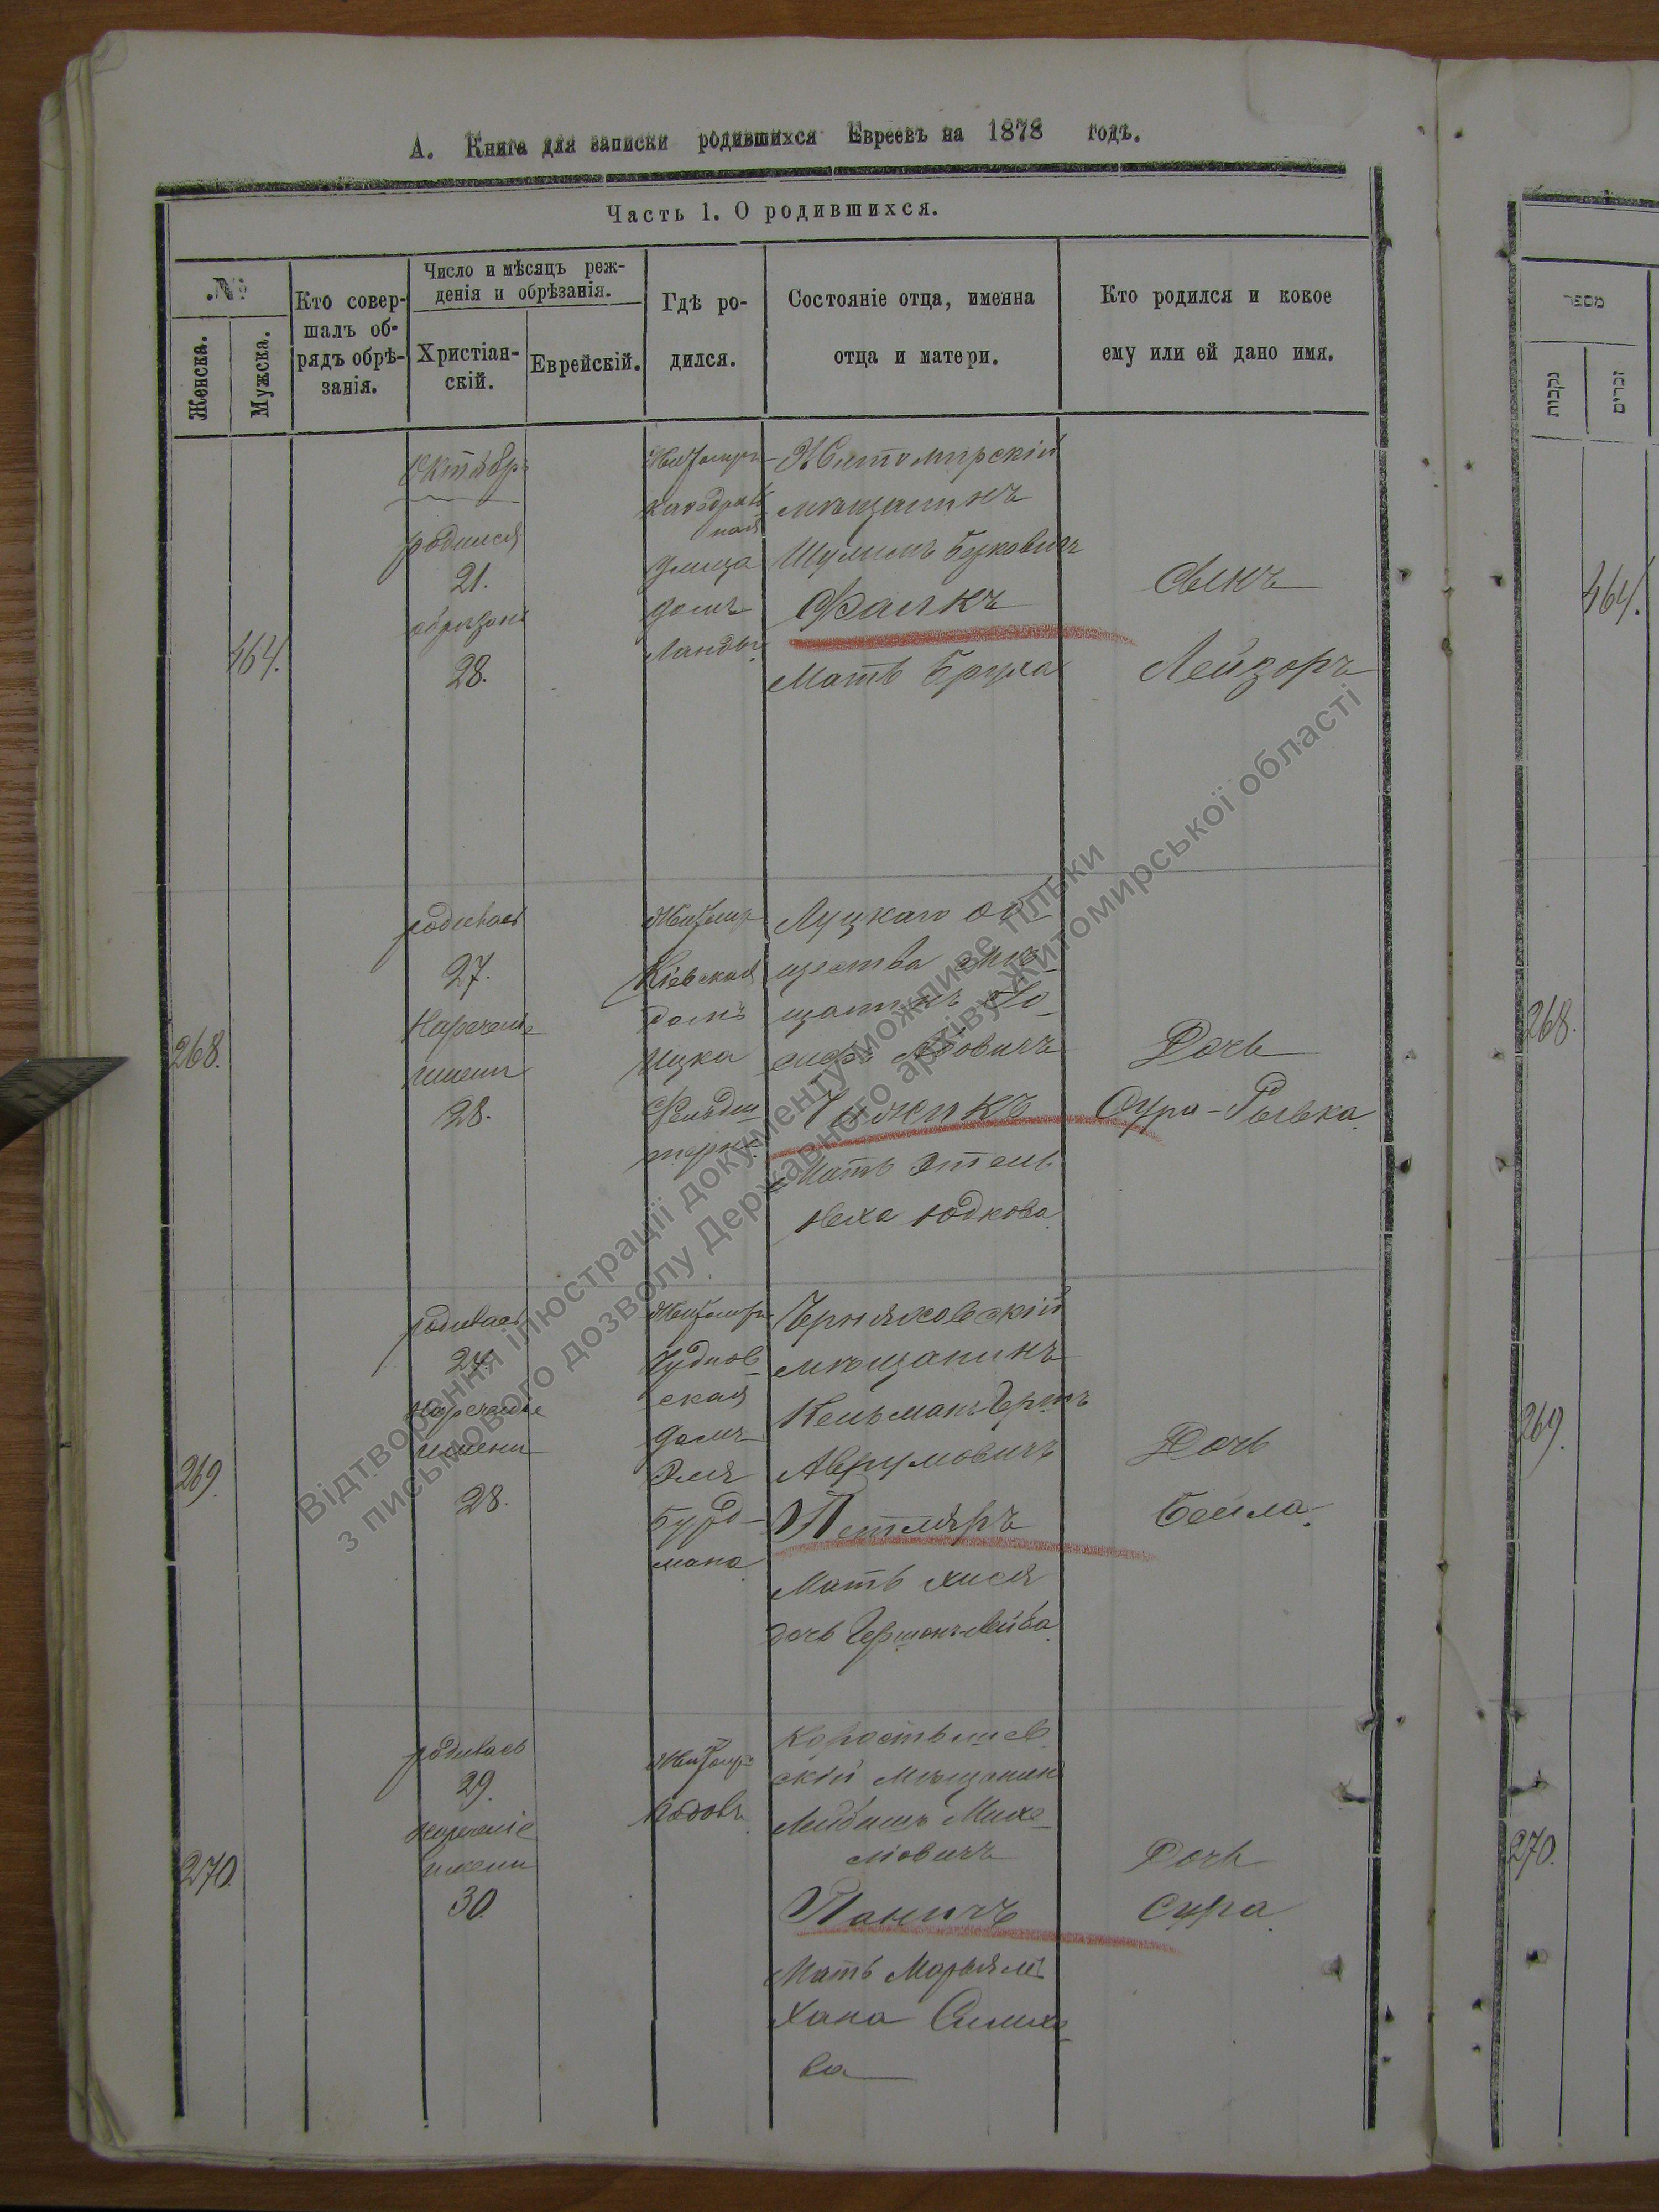 А. Книга для записки родившихся Евреевъ на 1878 годъ.
Часть 1. О родившихся.
№
Женска.
Мужска.
Кто совер-
шалъ об-
рядъ обрѣ-
занія.
Число и мѣсяцъ реж-
денія и обрѣзанія.
Христіан-
скій.
Еврейскій.
Гдѣ ро-
дился.
Состояніе отца, имення
отца и матери.
Кто родился и кокое
ему или ей дано имя.
464.
Октябрь
родился
21.
обрезанъ
28.
Кафедраль
ная
улица
домъ
Ланды
Житомирскій
мещанинъ
Шулимъ Берковичъ
Фаикъ
Мать Бруха
Сынъ
Лейзоръ
268.
родилась
27.
Наречение
имени
28.
Кіевская
домъ
Ицка
Фельдш
Луцкаго об
щества мѣ-
щанинъ Іо-
сифъ
Мать Этель
Неха Юдкова
Дочь
Сура-Рывка.
269.
родилась
24.
Наречение
имени
28.
Чуднов-
ская
домъ
Эля
Бурд-
мана
Черняховскій
мѣщанинъ
Кельманъ Герша
Аврумовичъ
Мать Хися
дочь Гершонъ-Лейба.
Дочь
Бейла.
270.
родилась
29.
Наречение
имени
30.
Коростышев
скій Мѣщанинъ
Лейбишъ Михе-
левичъ
Паничъ
Мать Марьямъ
Хана Симхо-
ва
Дочь
Сура.
מספר
נקבות
זכרים
464.
268.
269.
270.
Відтворення ілюстрації документу можливе тільки
з письмового дозволу Державного архіву Житомирської області